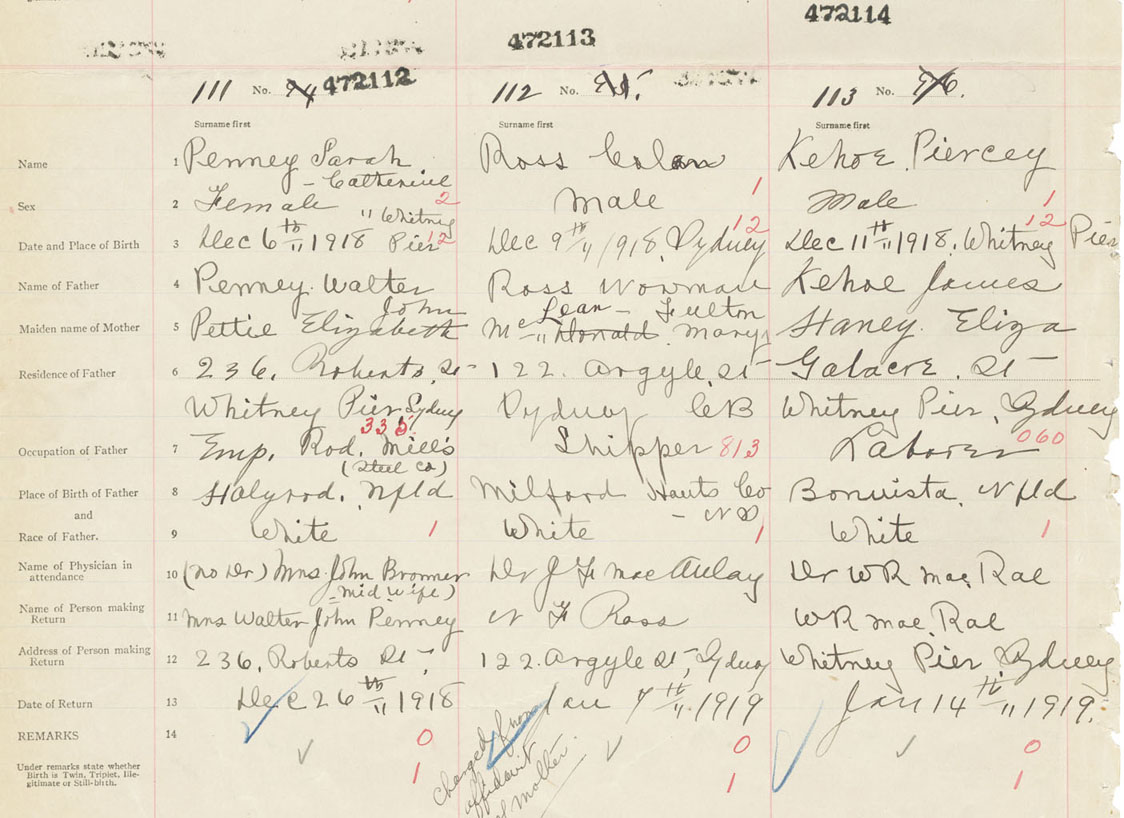 472114
472113
111 No. 94 472112
112 No. 95.
113 No. 96.
Surname first Surname first Surname first
Name 1 Penney Sarah Ross Colon Kehoe. Piercey
- Catherine
Sex 2 Female 2 Male 1 Male 1
" Whitney 12 12
Date and Place of Birth 3 Dec 6th " 1918 Pier 12 Dec 9th " 1918. Sydney Dec 11th " 1918. Whitney Pier
Name of Father 4 Penney. Walter Ross Norman Kehoe James
John Lean - Fulton
Maiden name of Mother 5 Pettie Elizabeth Mc " Donald. Mary Haney. Eliza
Residence of Father 6 236. Roberts. St- 122. Argyle. St- Galacre. St
Whitney Pier Sydney Sydney CB Whitney Pier, Sydney
335
Occupation of Father 7 Emp. Rod. Mills Shipper 813 Laborer 060
(Steel Co)
Place of Birth of Father 8 Halyrod. Nfld Milford Hants Co Bonvista. Nfld
and - N S
Race of Father. 9 White 1 White 1 White 1
Name of Physician in
attendance 10 (No Dr) Mrs. John Bronner Dr J F MacAulay Dr WR Mac. Rae
- mid wife)
Name of Person making
Return 11 Mrs Walter John Penney N F Ross WR Mac. Rae
Address of Person making
Return 12 236, Roberts St-, 122. Argyle St-, Sydney Whitney Pier Sydney
Date of Return 13 Dec 26th " 1918 Jan 7th " 1919 Jan 14th " 1919.
REMARKS 14 0 0 0
Under remarks state whether
Birth is Twin, Triplet, Ille-
gitimate or Still-birth. 1 1 1
changed from
affidavit
of mother.